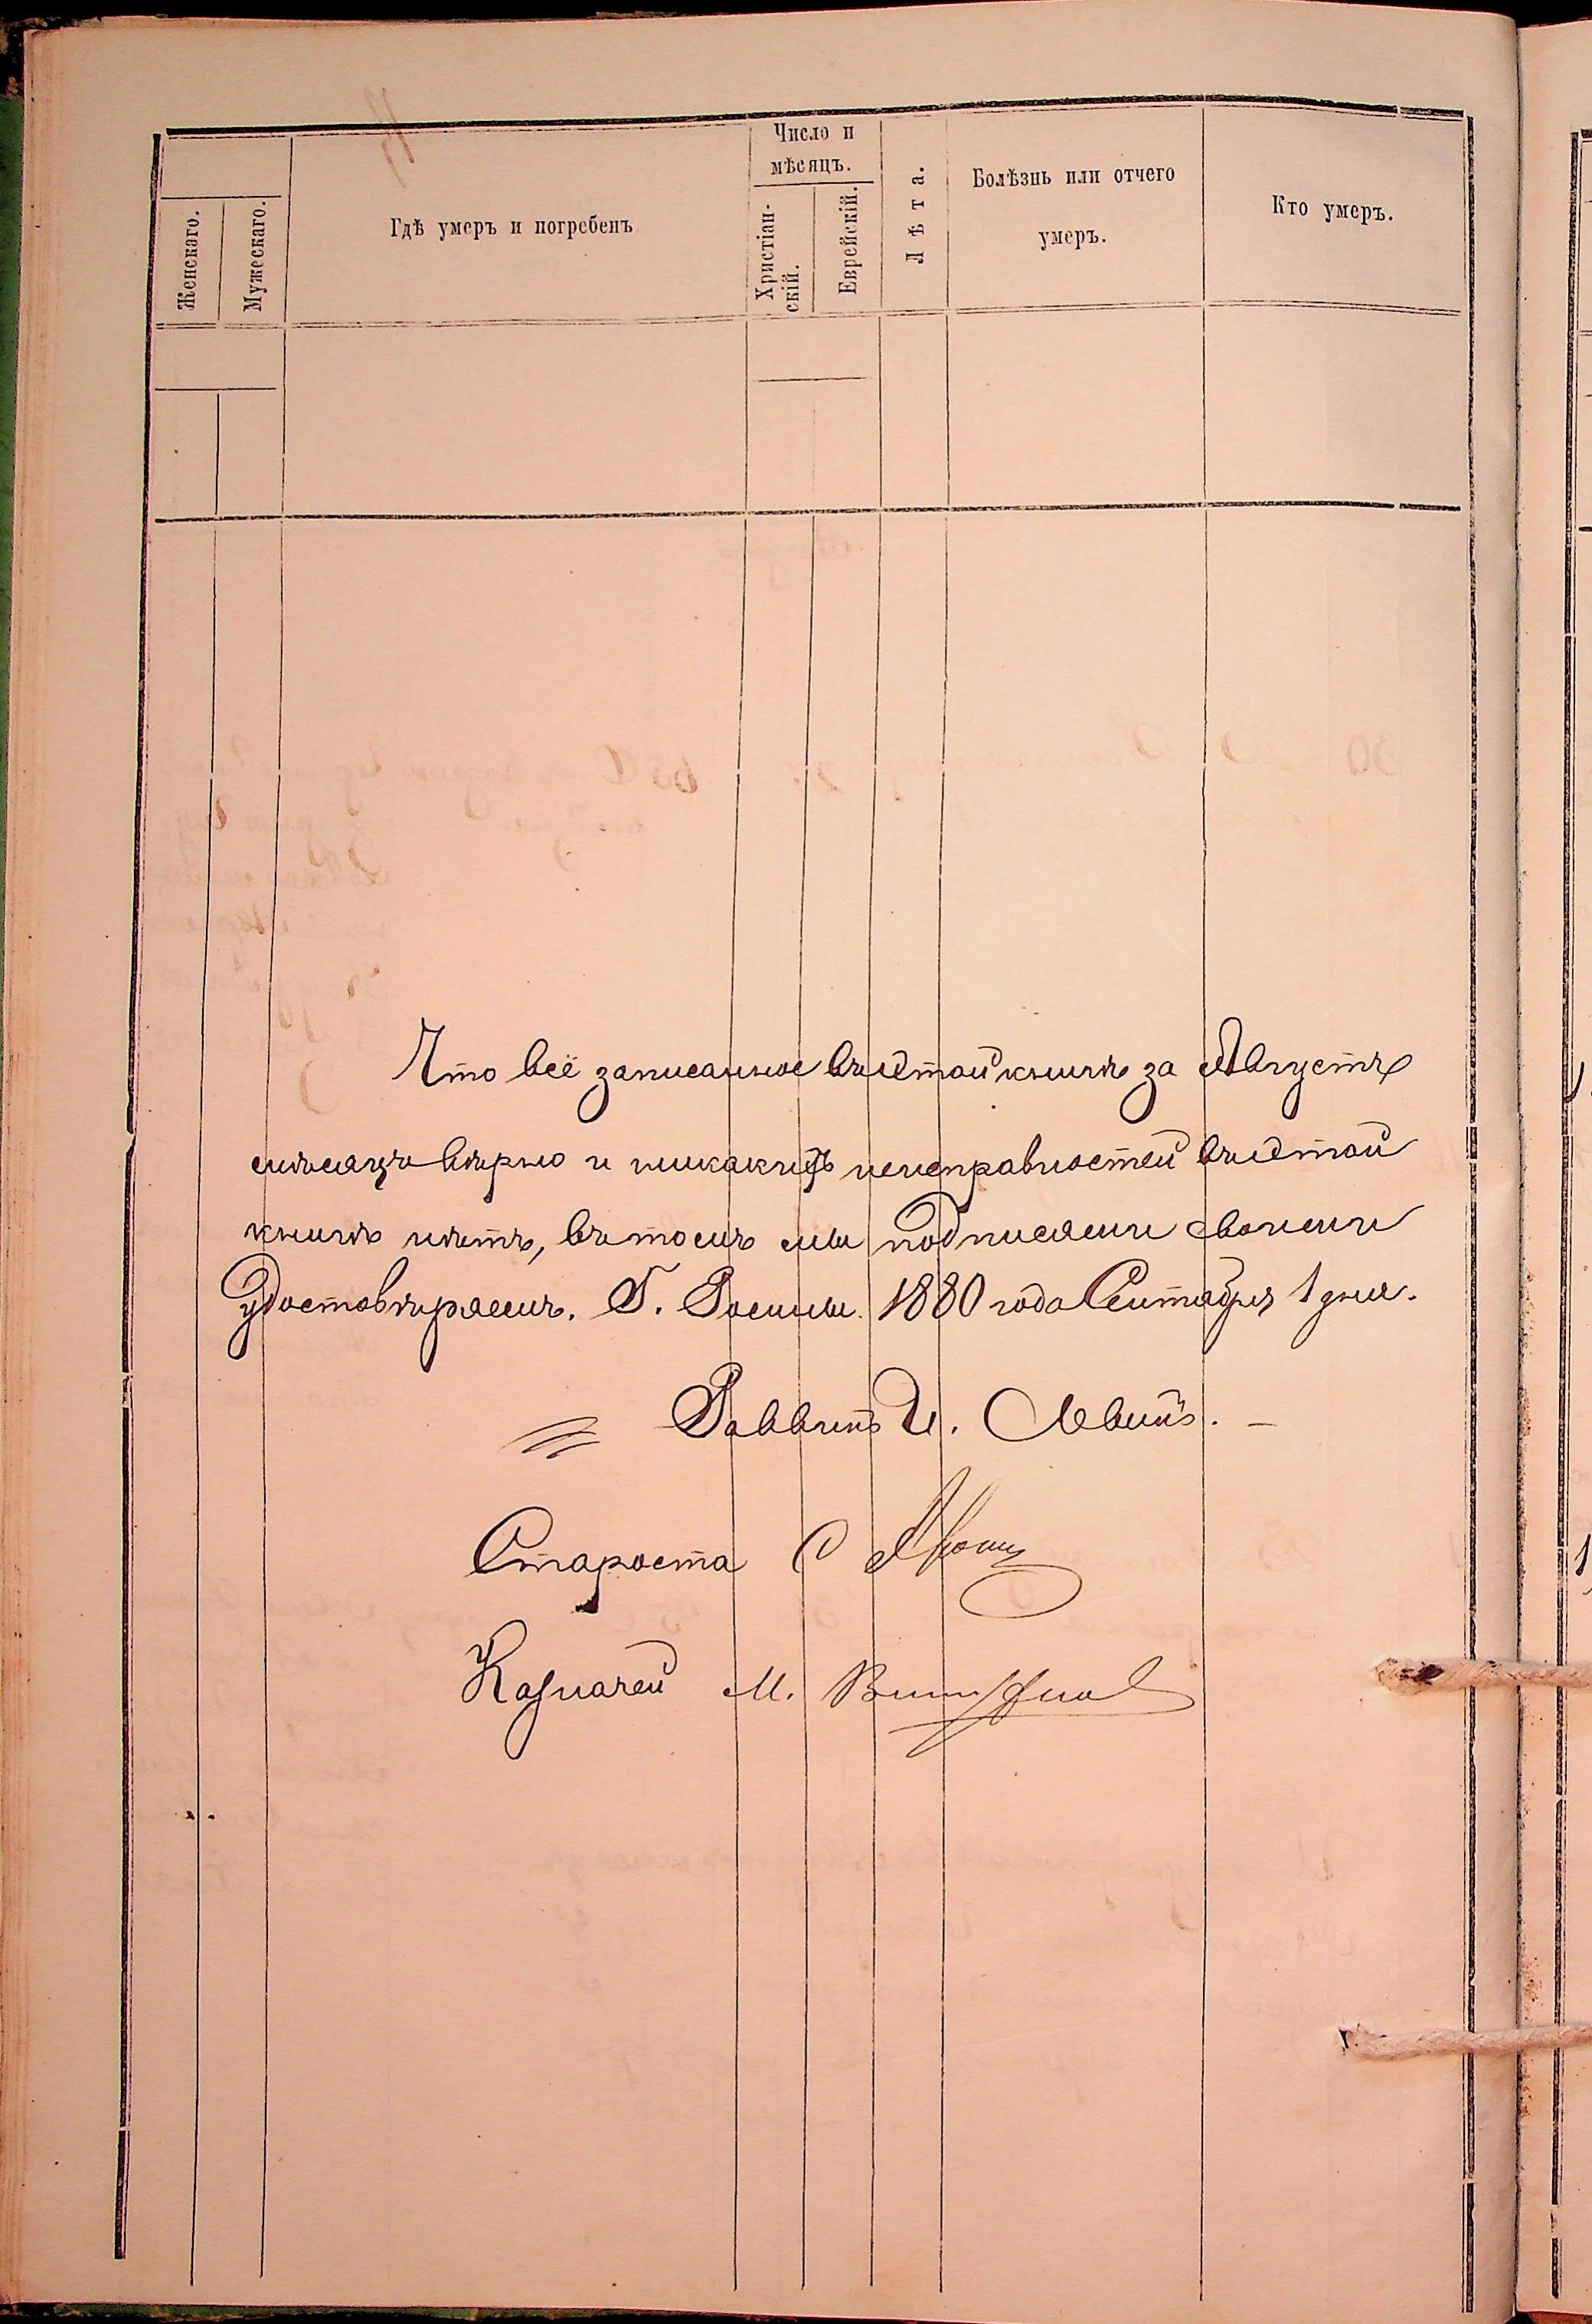 Женскаго.
Мужескаго.
Гдѣ умеръ и погребенъ
Число и
мѣсяцъ.
Христіан-
скій.
Еврейскій.
Лѣта.
Болѣзнь или отчего
умеръ.
Кто умеръ.
Что всё записанное въ этой книгѣ за Августъ
мѣсяцъ вѣрно и никакихъ неисправностей въ этой
книгѣ нѣтъ, въ томъ мы подписями своими
удостовѣряемъ. Г. 1880 года Сентября 1 дня.
Раввинъ И. Левинъ.
Староста С
Казначей М.